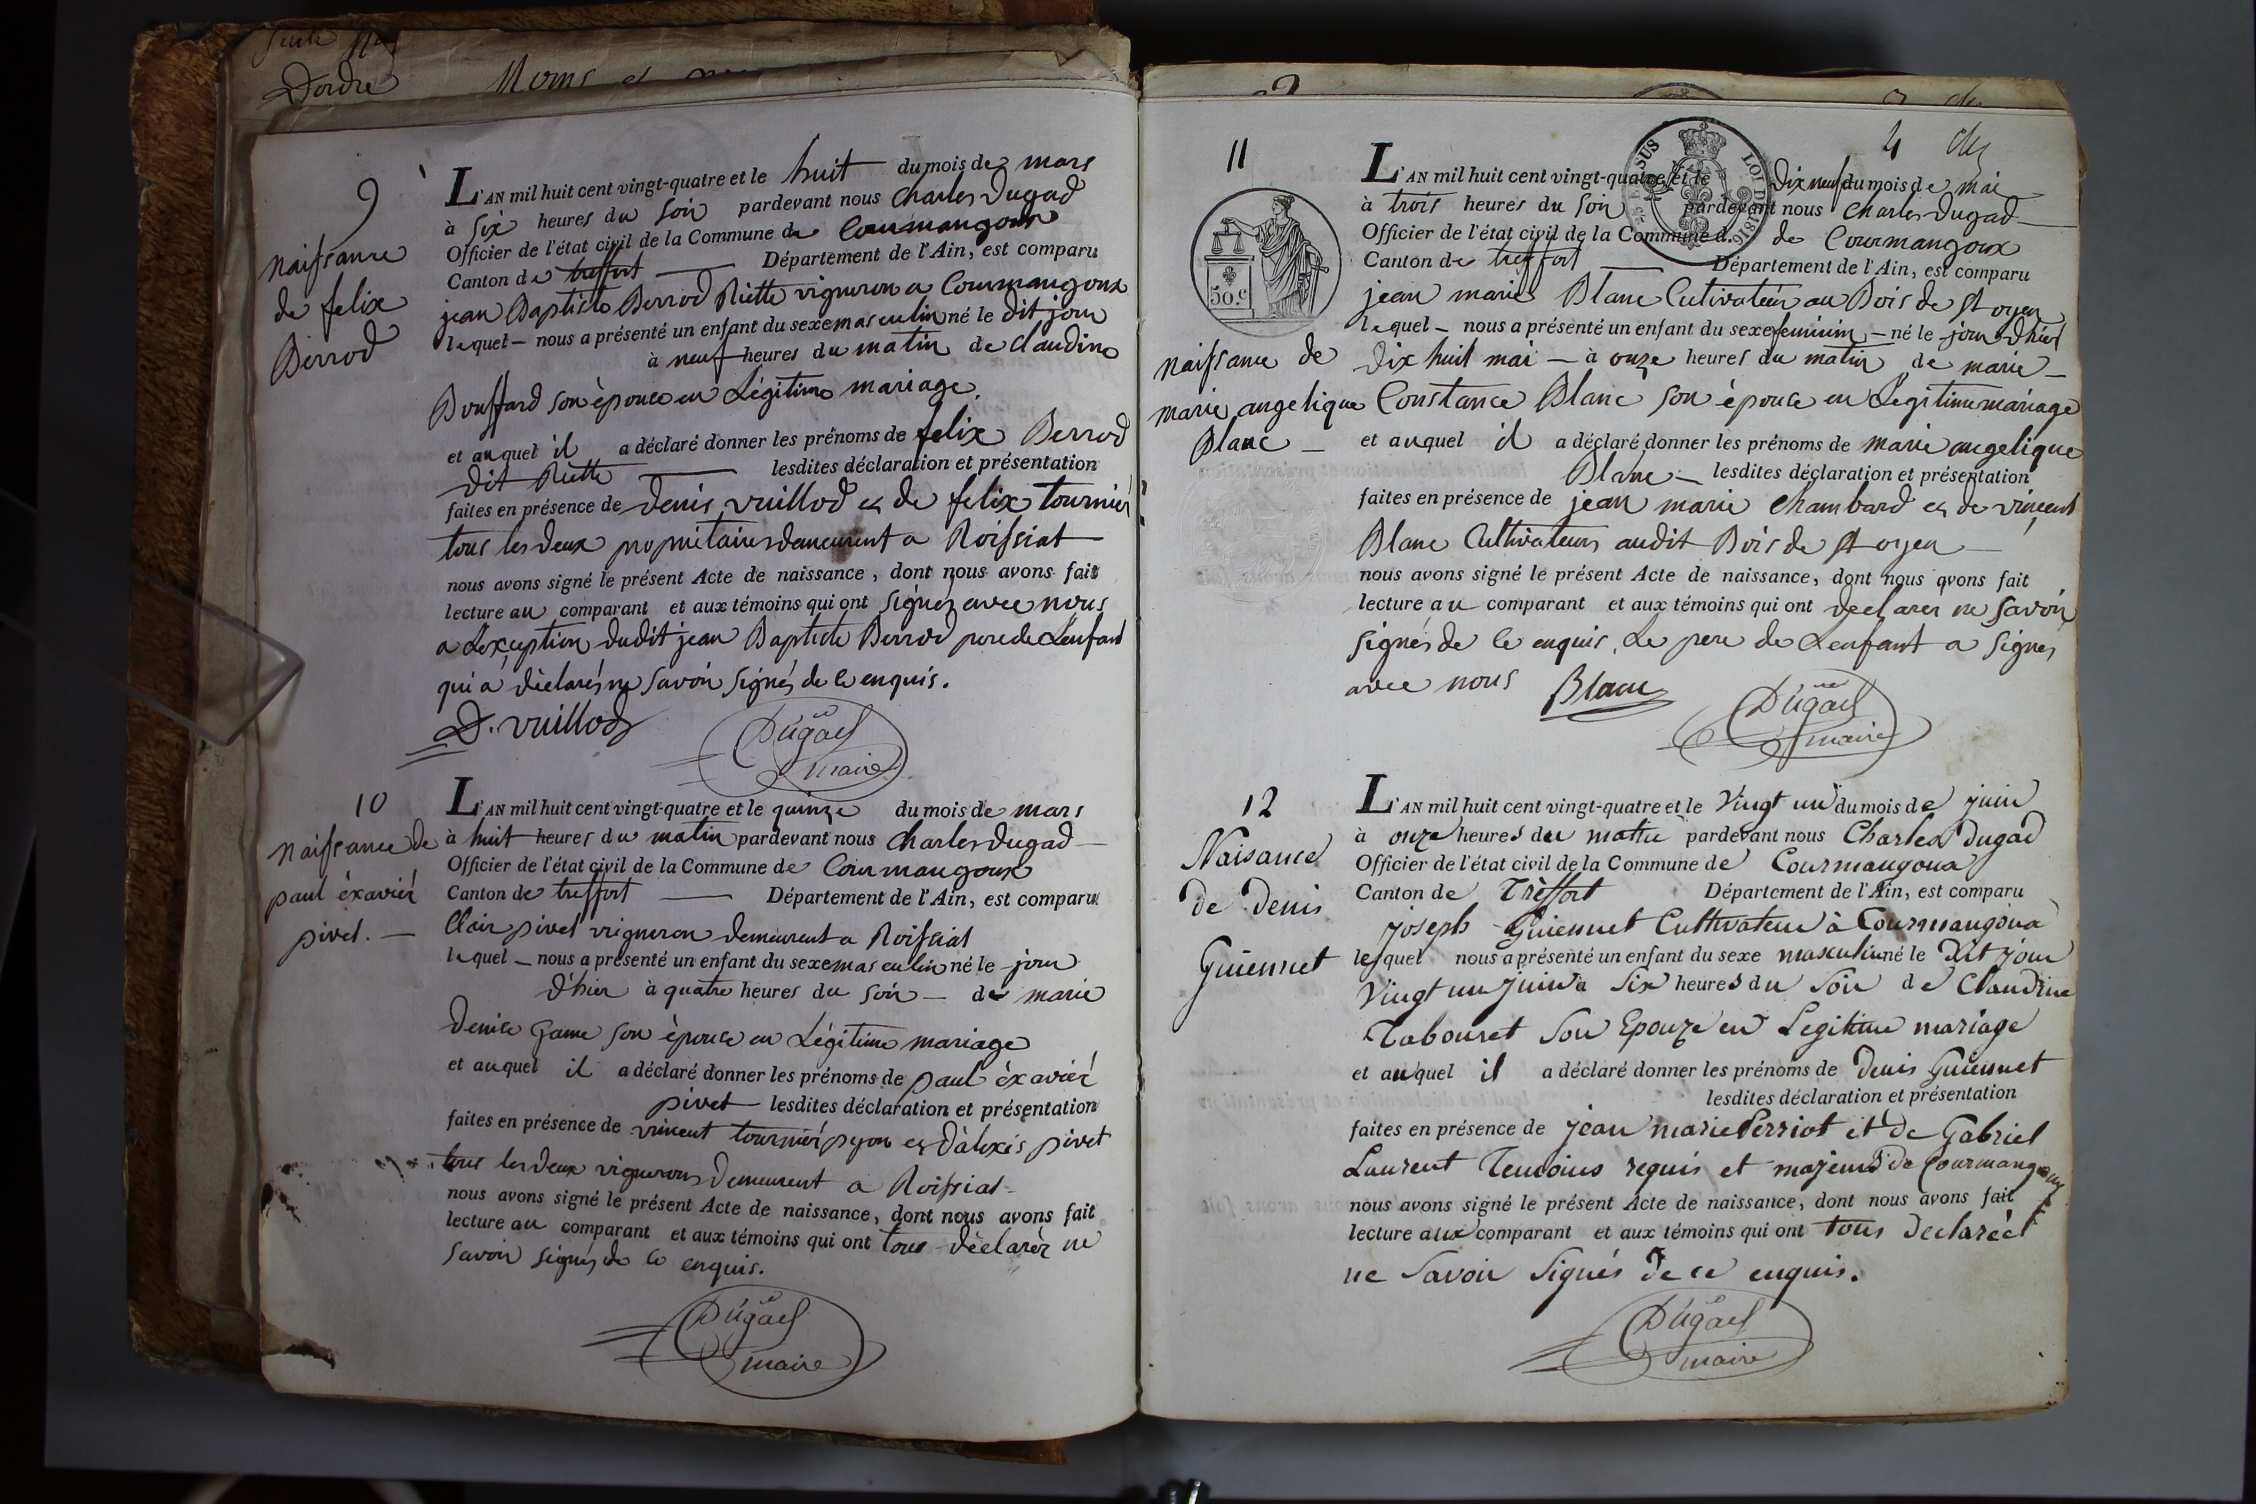 Dordre
Noms et
9
naissance
de felix
Berrod
L'AN mil huit cent vingt-quatre et le huit du mois de mars
à Six heures du Soir pardevant nous Charles Dugad
Officier de l'état civil de la Commune de Courmangoux
Canton de treffort Département de l'Ain, est comparu
jean Baptiste Berrod Riette vigneron a Courmangoux
lequel nous a présenté un enfant du sexe masculin né le dit jour
à neuf heures du matin de Claudine
Bouffard son épouce en Légitime mariage.
et auquel il a déclaré donner les prénoms de felix Berrod
dit Riette lesdites déclaration et présentation
faites en présence de denis vuillod et de felix tournier
tous les deux propriétaires demeurent a Roissiat
nous avons signé le présent Acte de naissance, dont nous avons fait
lecture au comparant et aux témoins qui ont signés avec nous
a Lexception dudit jean Baptiste Berrod pere de Lenfant
qui a déclarés ne savoir signés de ce enquis.
D. vuillod
Dugad
maire
10
naissance de
paul éxavier
pivet.
L'AN mil huit cent vingt-quatre et le quinze du mois de mars
à huit heures du matin pardevant nous Charles Dugad
Officier de l'état civil de la Commune de Courmangoux
Canton de treffort Département de l'Ain, est comparu
Clair pivet vigneron demeurent a Roissiat
lequel nous a présenté un enfant du sexe masculin né le jour
d'hier à quatre heures du Soir de marie
denise Game son épouce en Légitime mariage
et auquel il a déclaré donner les prénoms de paul éxavier
pivet lesdites déclaration et présentation
faites en présence de vincent tournier pyon et d'alexis pivet
tous les deux vignerons demeurent a Roissiat
nous avons signé le présent Acte de naissance, dont nous avons fait
lecture au comparant et aux témoins qui ont tous déclarér ne
savoir signés de ce enquis.
Dugad
maire
4
11
50.c
naissance de
marie angelique
Blanc
L'AN mil huit cent vingt-quatre et le Dix neuf du mois de mai
à trois heures du Soir pardevant nous Charles Dugad
Officier de l'état civil de la Commune d. de Courmangoux
Canton de treffort Département de l'Ain, est comparu
jean marie Blanc Cutivateur au Bois de St oyen
lequel nous a présenté un enfant du sexe feminin né le jour d'hier
dix huit mai à onze heures du matin de marie
Constance Blanc son épouce en Légitime mariage
et auquel il a déclaré donner les prénoms de marie angelique
Blanc lesdites déclaration et présentation
faites en présence de jean marie Chambard et de vincent
Blanc Cultivateurs audit Bois de St oyen
nous avons signé le présent Acte de naissance, dont nous avons fait
lecture au comparant et aux témoins qui ont declarer ne savoir
signés de ce enquis, Le pere de Lenfant a signés
avec nous Blanc
Dugad
maire
12
Naisance
de denis
Guiennet
L'AN mil huit cent vingt-quatre et le Vingt un du mois de juin
à onze heures du matin pardevant nous Charles Dugad
Officier de l'état civil de la Commune de Courmangoua
Canton de Treffort Département de l'Ain, est comparu
joseph Guiennet Cultivateur à Courmangoua
lequel nous a présenté un enfant du sexe masculin né le Dit jour
Vingt un juin à Six heures du Soir de Claudine
Tabouret Son Epouze en Legitime mariage
et auquel il a déclaré donner les prénoms de Denis Guiennet
lesdites déclaration et présentation
faites en présence de jean marie Perriot et de Gabriel
Laurent Temoins requis et majeurs de Courmangoux
nous avons signé le présent Acte de naissance, dont nous avons fait
lecture aux comparant et aux témoins qui ont tous Declaréet
ne Savoir Signés de ce enquis.
Dugad
maire